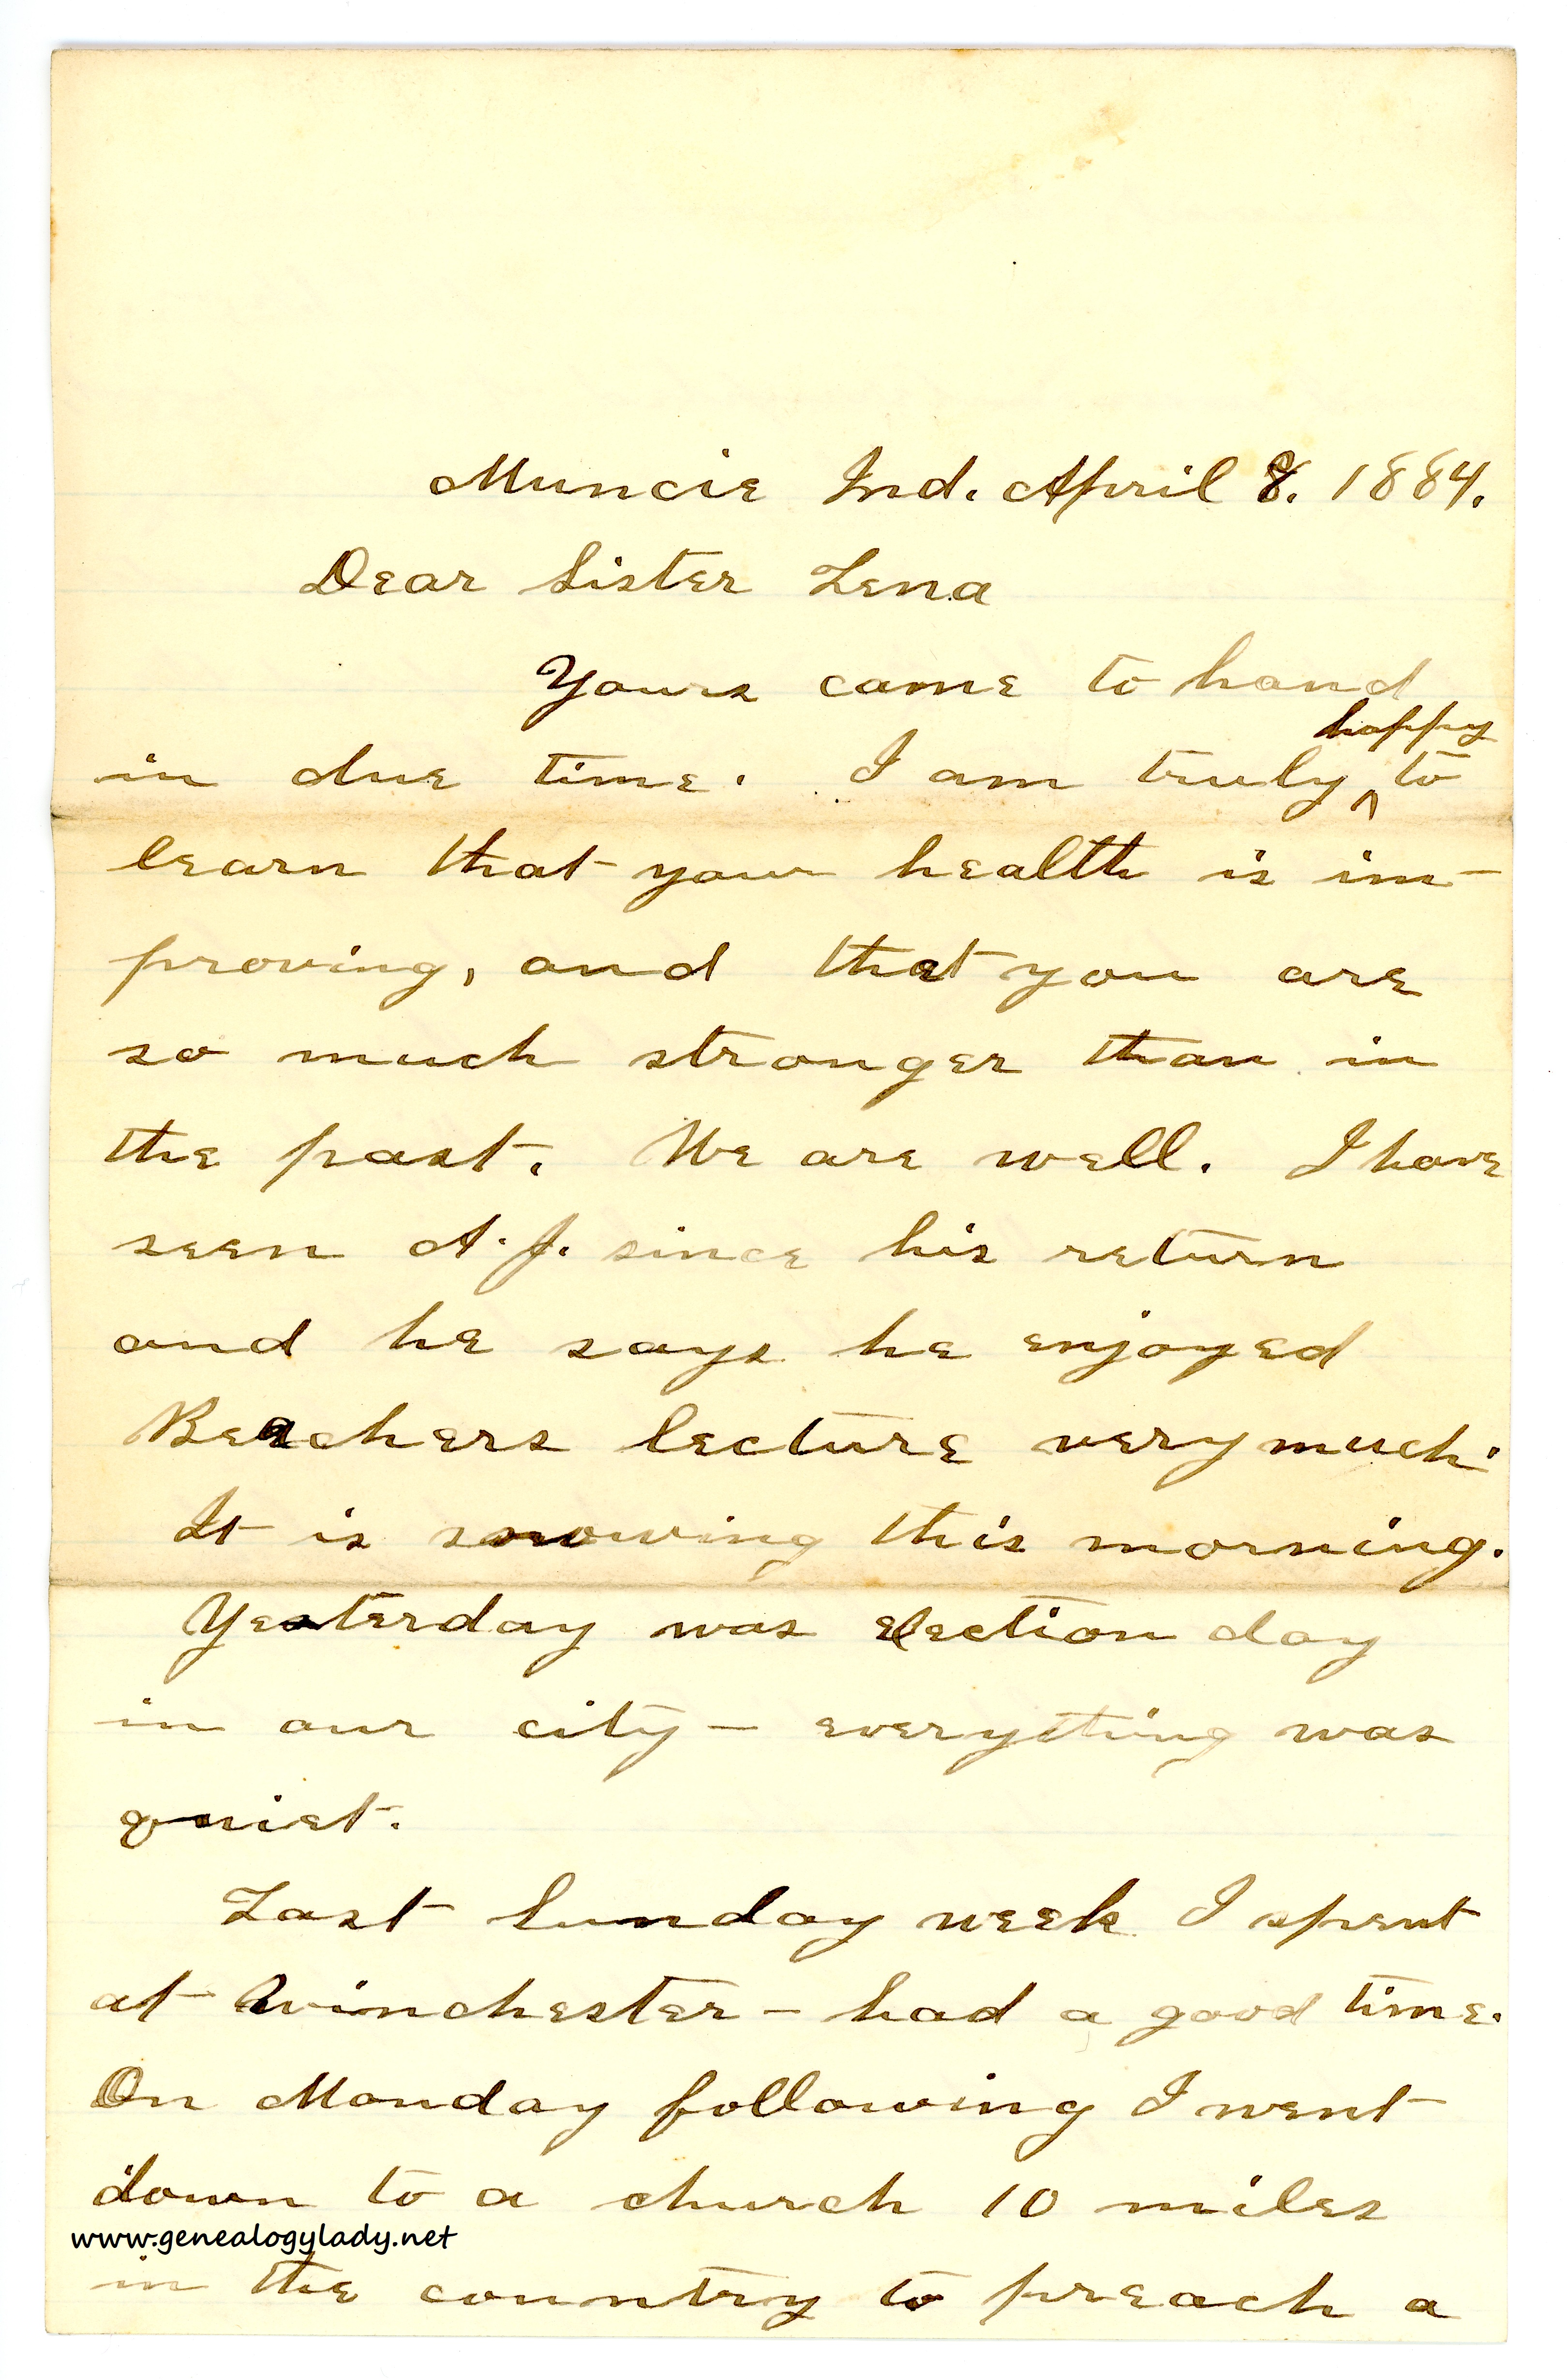 Muncie Ind. April 8. 1884.
Dear Sister Lena
Yours came to hand
happy
in due time. I am truly ^ to
learn that your health is im-
proving, and that you are
so much stronger than in
the past. We are well. I have
seen A. J. since his return
and he says he enjoyed
Beechers lecture very much.
It is snowing this morning.
Yesterday was election day
in our city – everything was
quiet.
Last Sunday week I spent
at Winchester – had a good time.
On Monday following I went
down to a church 10 miles
www.genealogylady.net
in the country to preach a